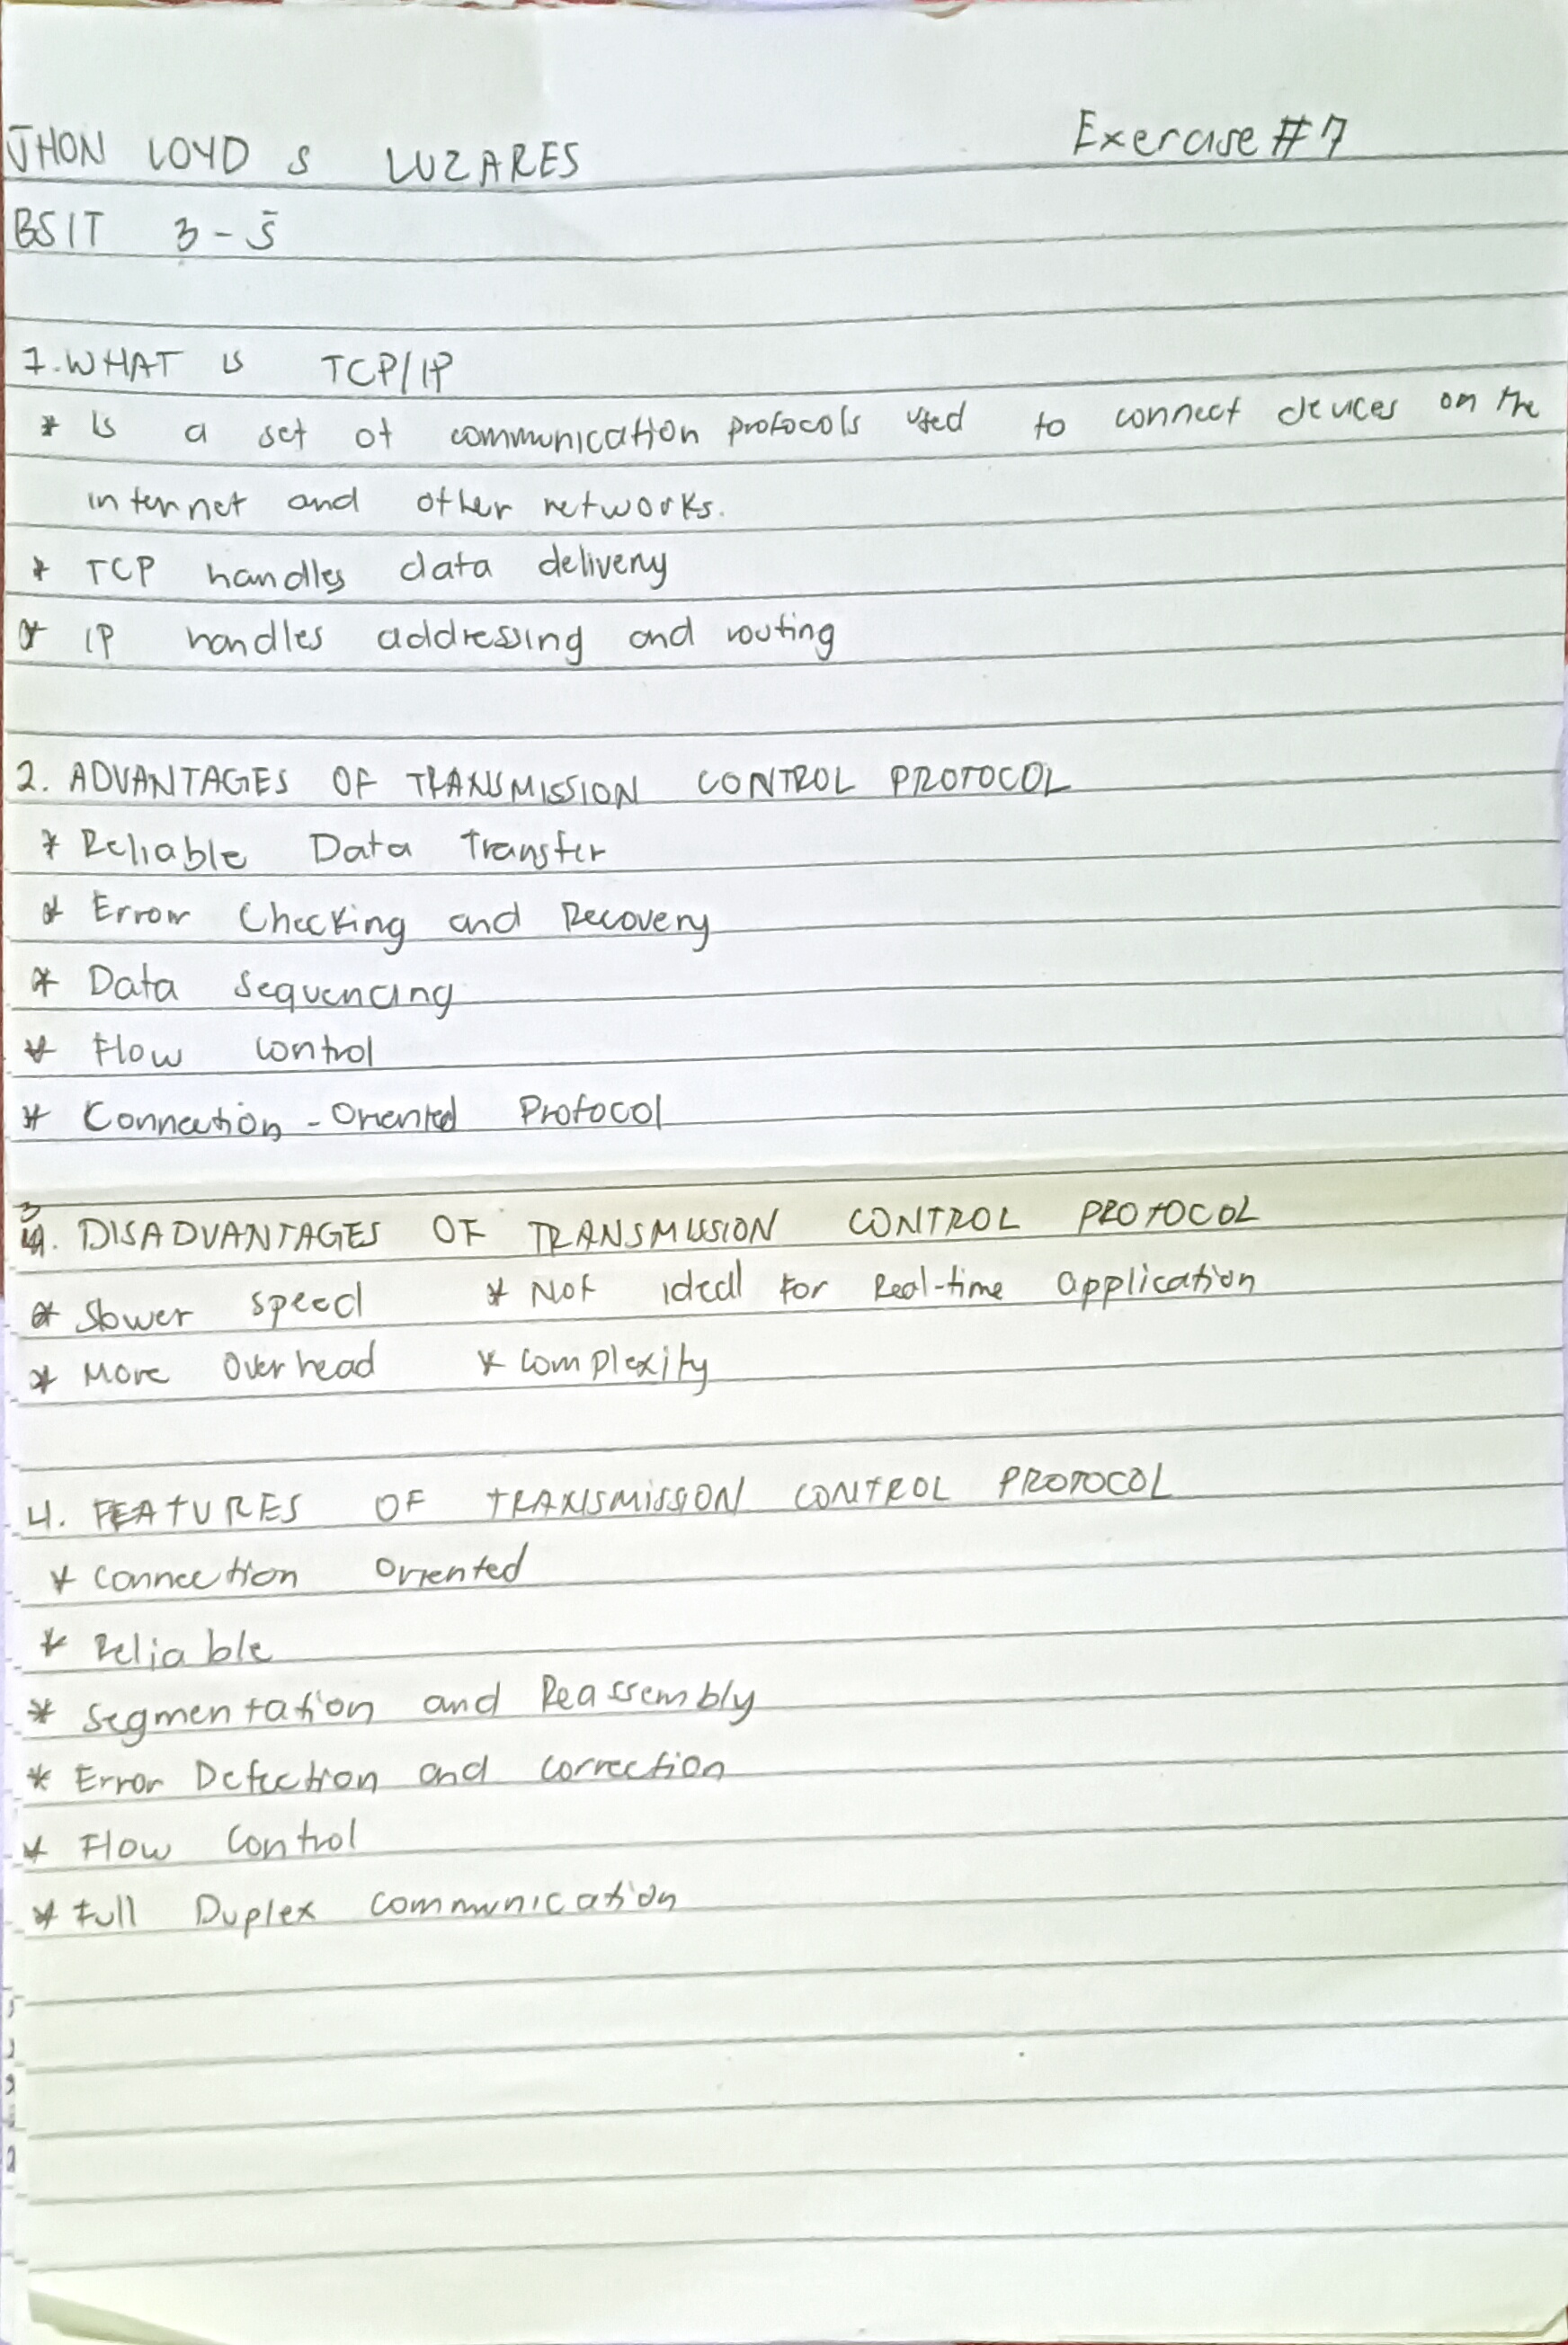 JHON LOYD S LUZARES Exercise #7
BSIT 3-5
1. WHAT IS TCP/IP
* Is a set of communication protocols used to connect devices on the
internet and other networks.
* TCP handles data delivery
* IP handles addressing and routing
2. ADVANTAGES OF TRANSMISSION CONTROL PROTOCOL
* Reliable Data Transfer
* Error Checking and Recovery
* Data Sequencing
* Flow Control
* Connection-Oriented Protocol
3. DISADVANTAGES OF TRANSMISSION CONTROL PROTOCOL
* Slower speed * Not ideal for Real-time application
* More Overhead * Complexity
4. FEATURES OF TRANSMISSION CONTROL PROTOCOL
* Connection Oriented
* Reliable
* Segmentation and Reassembly
* Error Detection and correction
* Flow Control
* Full Duplex Communication